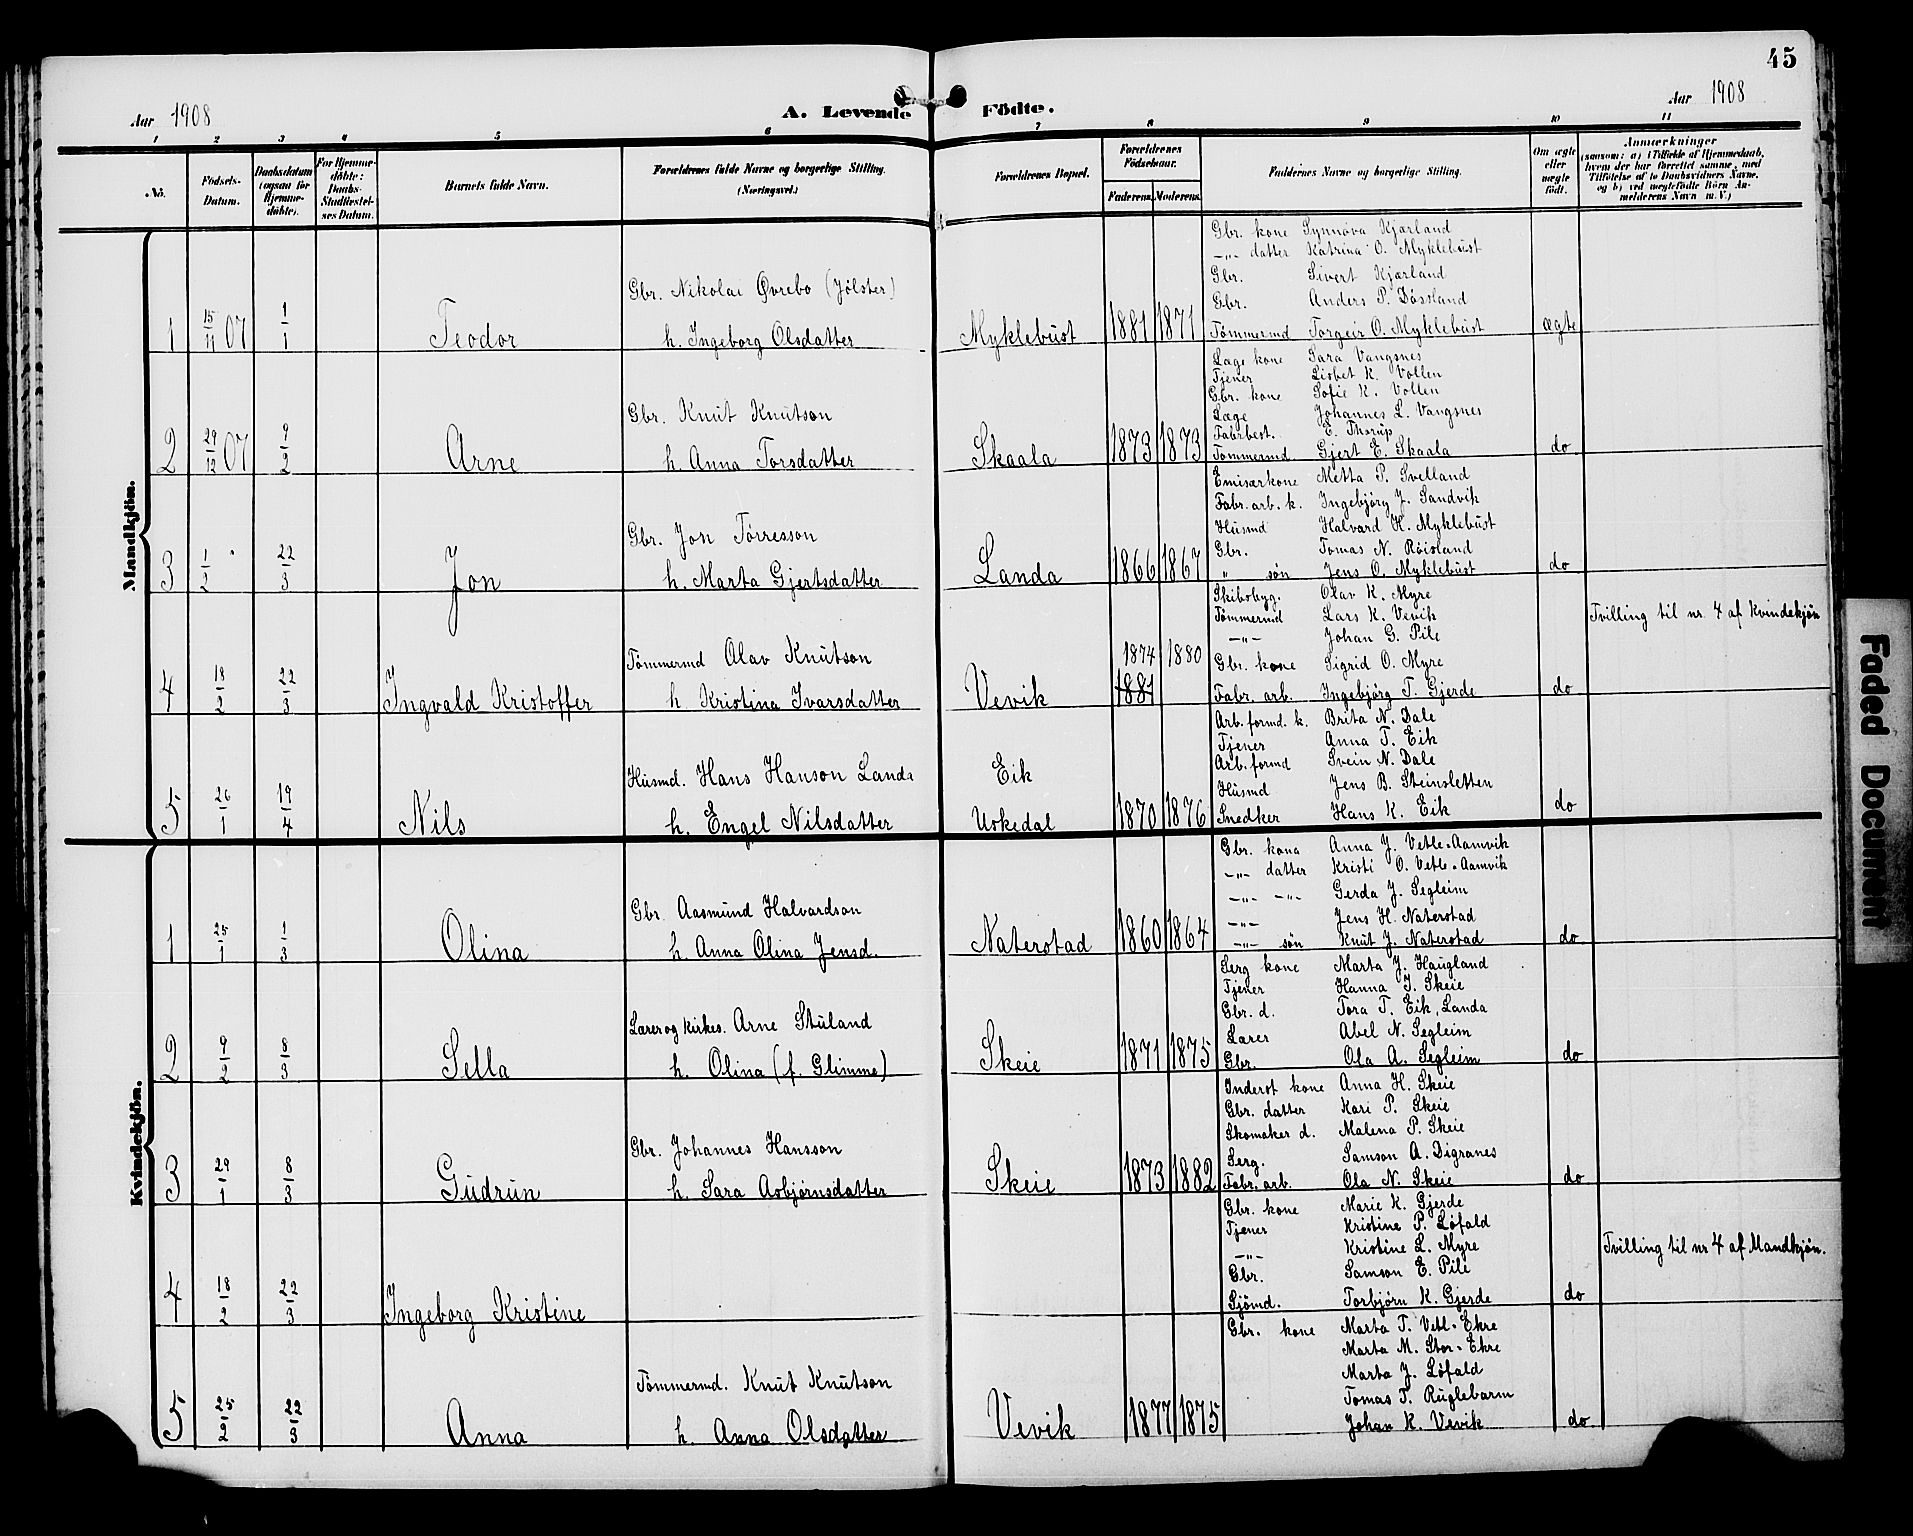 45
Aar 1908
A. Levende Födte.
Aar 1908
1 2 3 4 5 6 7 8 9 10 11
No. Födsels-Datum. Daabsdatum (ogsaa for Hjemmedöbte). For Hjemmedöbte: Daabs-Stadfæstelses Datum. Barnets fulde Navn. Forældrenes fulde Navne og borgerlige Stilling. (Næringsvei.) Forældrenes Bopæl. Forældrenes Födselsaar. Faderens. Moderens. Faddernes Navne og borgerlige Stilling. Om ægte eller uægte födt. Anmærkninger (saasom: a) i Tilfælde af Hjemmedaab, hvem der har forrettet samme, med Tilföielse af to Daabsvidners Navne, og b) ved uægtefödte Börn Anmelderens Navn m.V.)
Mandkjön.
Gbr. kone Synnøva Kjærland
-"- datter Katrina O. Myklebust
Gbr. Sivert Kjærland
Gbr. Nikolai Øvrebø (Jølster)
Gbr. Anders P. Døssland
1 15/11 07 1/1 Teodor h. Ingeborg Olsdatter Myklebust 1881 1871 Tømmermd Torgeir O. Myklebust ægte
Læge kone Sara Vangsnes
Tjener Lisbet K. Vollen
Gbr. kone Sofie K. Vollen
Gbr. Knut Knutson
Læge Johannes L. Vangsnes
Fabrbest. E. Thorup
2 29/12 07 9/2 Arne h. Anna Torsdatter Skaala 1873 1873 Tømmermd Gjert E. Skaala do
Emisærkone Metta P. Svelland
Fabr. arb. k. Ingebjörg J. Sandvik
Husmd Halvard H. Myklebust
Gbr. Jon Tørresson
Gbr. Tomas N. Røisland
3 1/2 22/3 Jon h. Marta Gjertsdatter Landa 1866 1867 " søn Jens O. Myklebust do
Skibsbyg. Olav K. Myre
Tømmermd Lars K. Vevik Tvilling til nr. 4 af Kvindekjøn
-"- Johan G. Pile
Tømmermd Olav Knutson 1874 1880
Gbr. kone Sigrid O. Myre
4 18/2 22/3 Ingvald Kristoffer h. Kristina Ivarsdatter Vevik 1881 Fabr. arb. Ingebjörg T. Gjerde do
Arb. formd. k. Brita N. Dale
Tjener Anna T. Eik
Arb. formd Svein N. Dale
Husmd. Hans Hanson Landa Eik
Husmd Jens B. Steinsletten
5 26/1 19/4 Nils h. Engel Nilsdatter Uskedal 1870 1876 Snedker Hans K. Eik do
Kvindekjön.
Gbr. kona Anna J. Vetle-Aamvik
-"- datter Kristi O. Vetle-Aamvik
-"- -"- Gerda J. Segleim
Gbr. Aasmund Halvardson
-"- Jens H. Naterstad
1 25/1 1/3 Olina h. Anna Olina Jensd. Naterstad 1860 1864 -"- søn Knut J. Naterstad do
Serg kone Marta J. Haugland
Tjener Hanna J. Skeie
Gbr. d. Tora T. Eik, Landa
Lærer og kirkes. Arne Stuland
Lærer Abel N. Segleim
2 9/2 8/3 Sella h. Olina (f. Glimme) Skeie 1871 1875 Gbr. Ola A. Segleim do
Inderst kone Anna H. Skeie
Gbr. datter Kari P. Skeie
Skomaker d. Malena P. Skeie
Gbr. Johannes Hansson
Serg. Samson A. Digranes
3 29/1 8/3 Gudrun h. Sara Asbjørnsdatter Skeie 1873 1882 Fabr. arb. Ola N. Skeie do
Gbr. kone Marie K. Gjerde
Tjener Kristine P. Løfald
-"- Kristine L. Myre Tvilling til nr 4 af Mandkjøn.
Gbr. Samson E. Pile
4 18/2 22/3 Ingeborg Kristine Sjömd. Torbjörn K. Gjerde do
Gbr. kone Marta T. Vetl-Ekre
Marta M. Stor-Ekre
Marta J. Løfald
Tømmermd. Knut Knutson
Tomas T. Ruglebarm
5 25/2 22/3 Anna h. Anna Olsdatter Vevik 1877 1875 Johan K. Vevik do
Faded Document